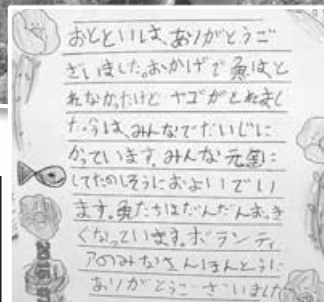 おとといは、ありがとうご
ざいました。おかげで魚は、と
れなかったけど ヤゴがとれまし
た。今は、みんなでだいじに
かっています。みんな元気に
してたのしそうにおよいでい
ます。魚たちはだんだんおっき
くなっています。ボランティ
アのみなさんほんとうに
ありがとうございました